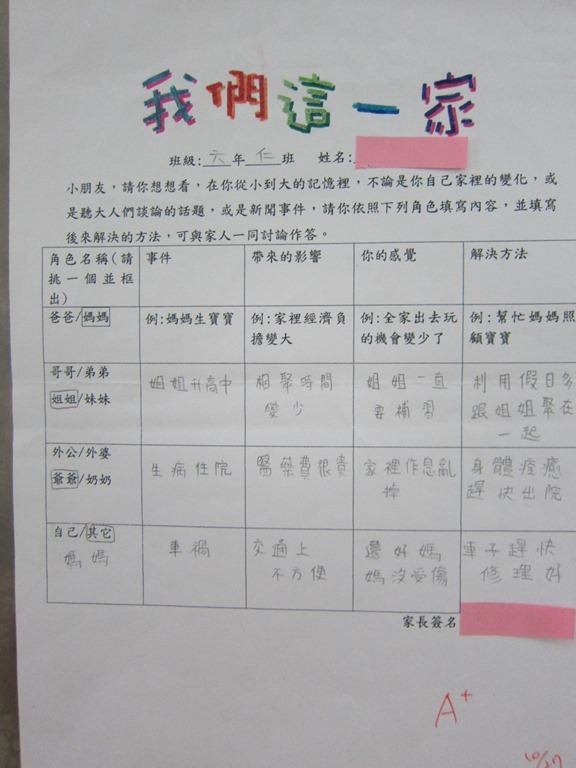 我們這一家
班級:六年仁班 姓名:
小朋友，請你想想看，在你從小到大的記憶裡，不論是你自己家裡的變化，或
是聽大人們談論的話題，或是新聞事件，請你依照下列角色填寫內容，並填寫
後來解決的方法，可與家人一同討論作答。
角色名稱(請挑一個並框出) 事件 帶來的影響 你的感覺 解決方法
爸爸/媽媽 例:媽媽生寶寶 例:家裡經濟負擔變大 例:全家出去玩的機會變少了 例:幫忙媽媽照顧寶寶
哥哥/弟弟
姐姐/妹妹 姐姐升高中 相聚時間變少 姐姐一直要補習 利用假日多跟姐姐聚在一起
外公/外婆
爺爺/奶奶 生病住院 醫藥費很貴 家裡作息亂掉 身體痊癒趕快出院
自己/其它
媽媽 車禍 交通上不方便 還好媽媽沒受傷 車子趕快修理好
家長簽名
A+
10/27